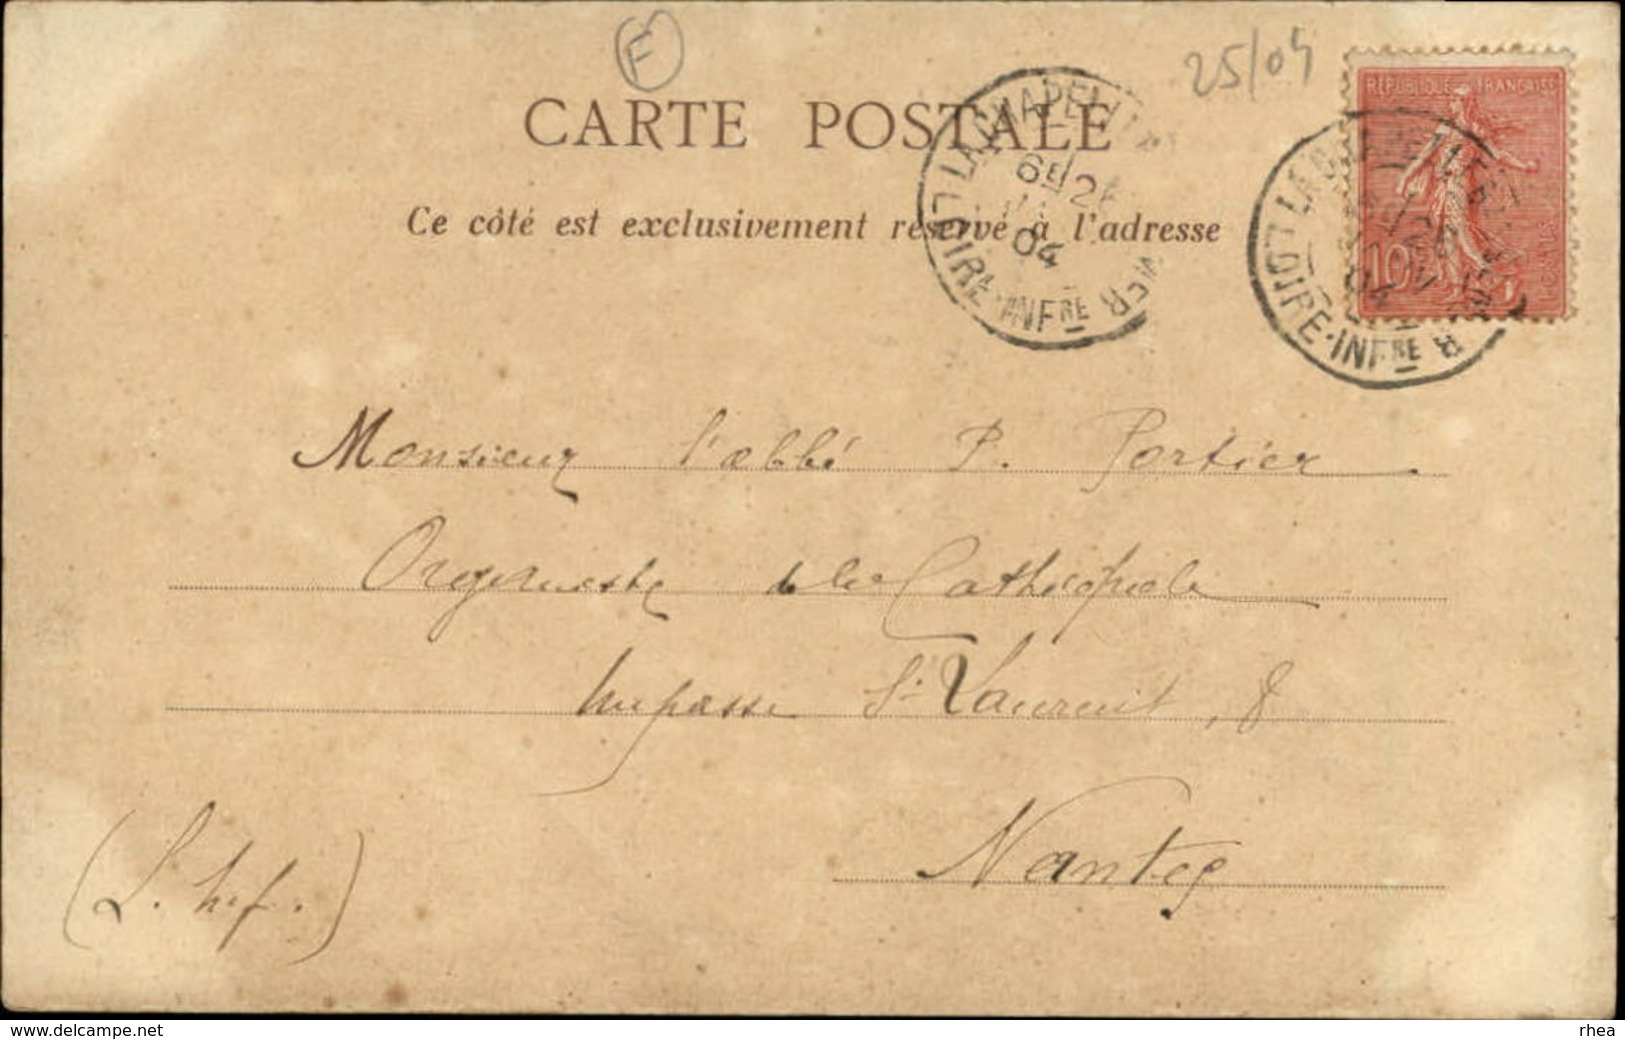 F
25/04
RÉPUBLIQUE FRANÇAISE
10
CARTE POSTALE
LA CHAPELLE
6E 26
04
LOIRE-INFRE
Ce côté est exclusivement réservé à l'adresse
LOIRE-INFRE
04
Monsieur l'abbé P. Portier
Organiste de la Cathédrale
Impasse St Laurent, 8
Nantes
(L. Inf.)
www.delcampe.net
rhea